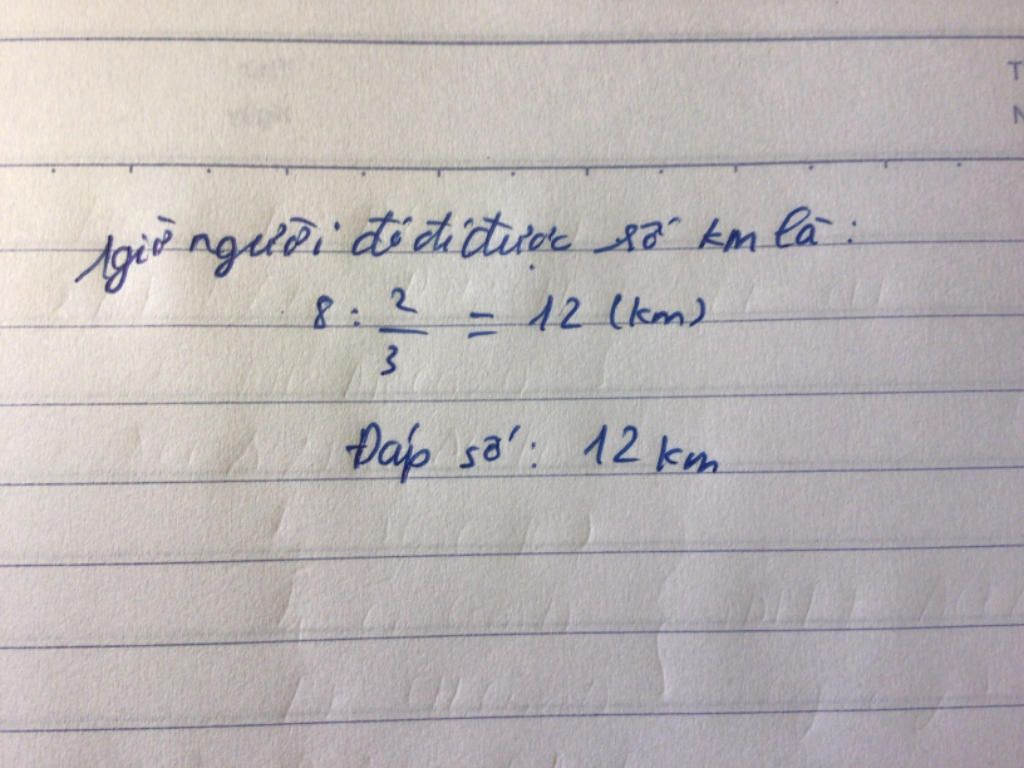 1 giờ người đó đi được số km là:
8 : 2/3 = 12 (km)
Đáp số: 12 km
T
N